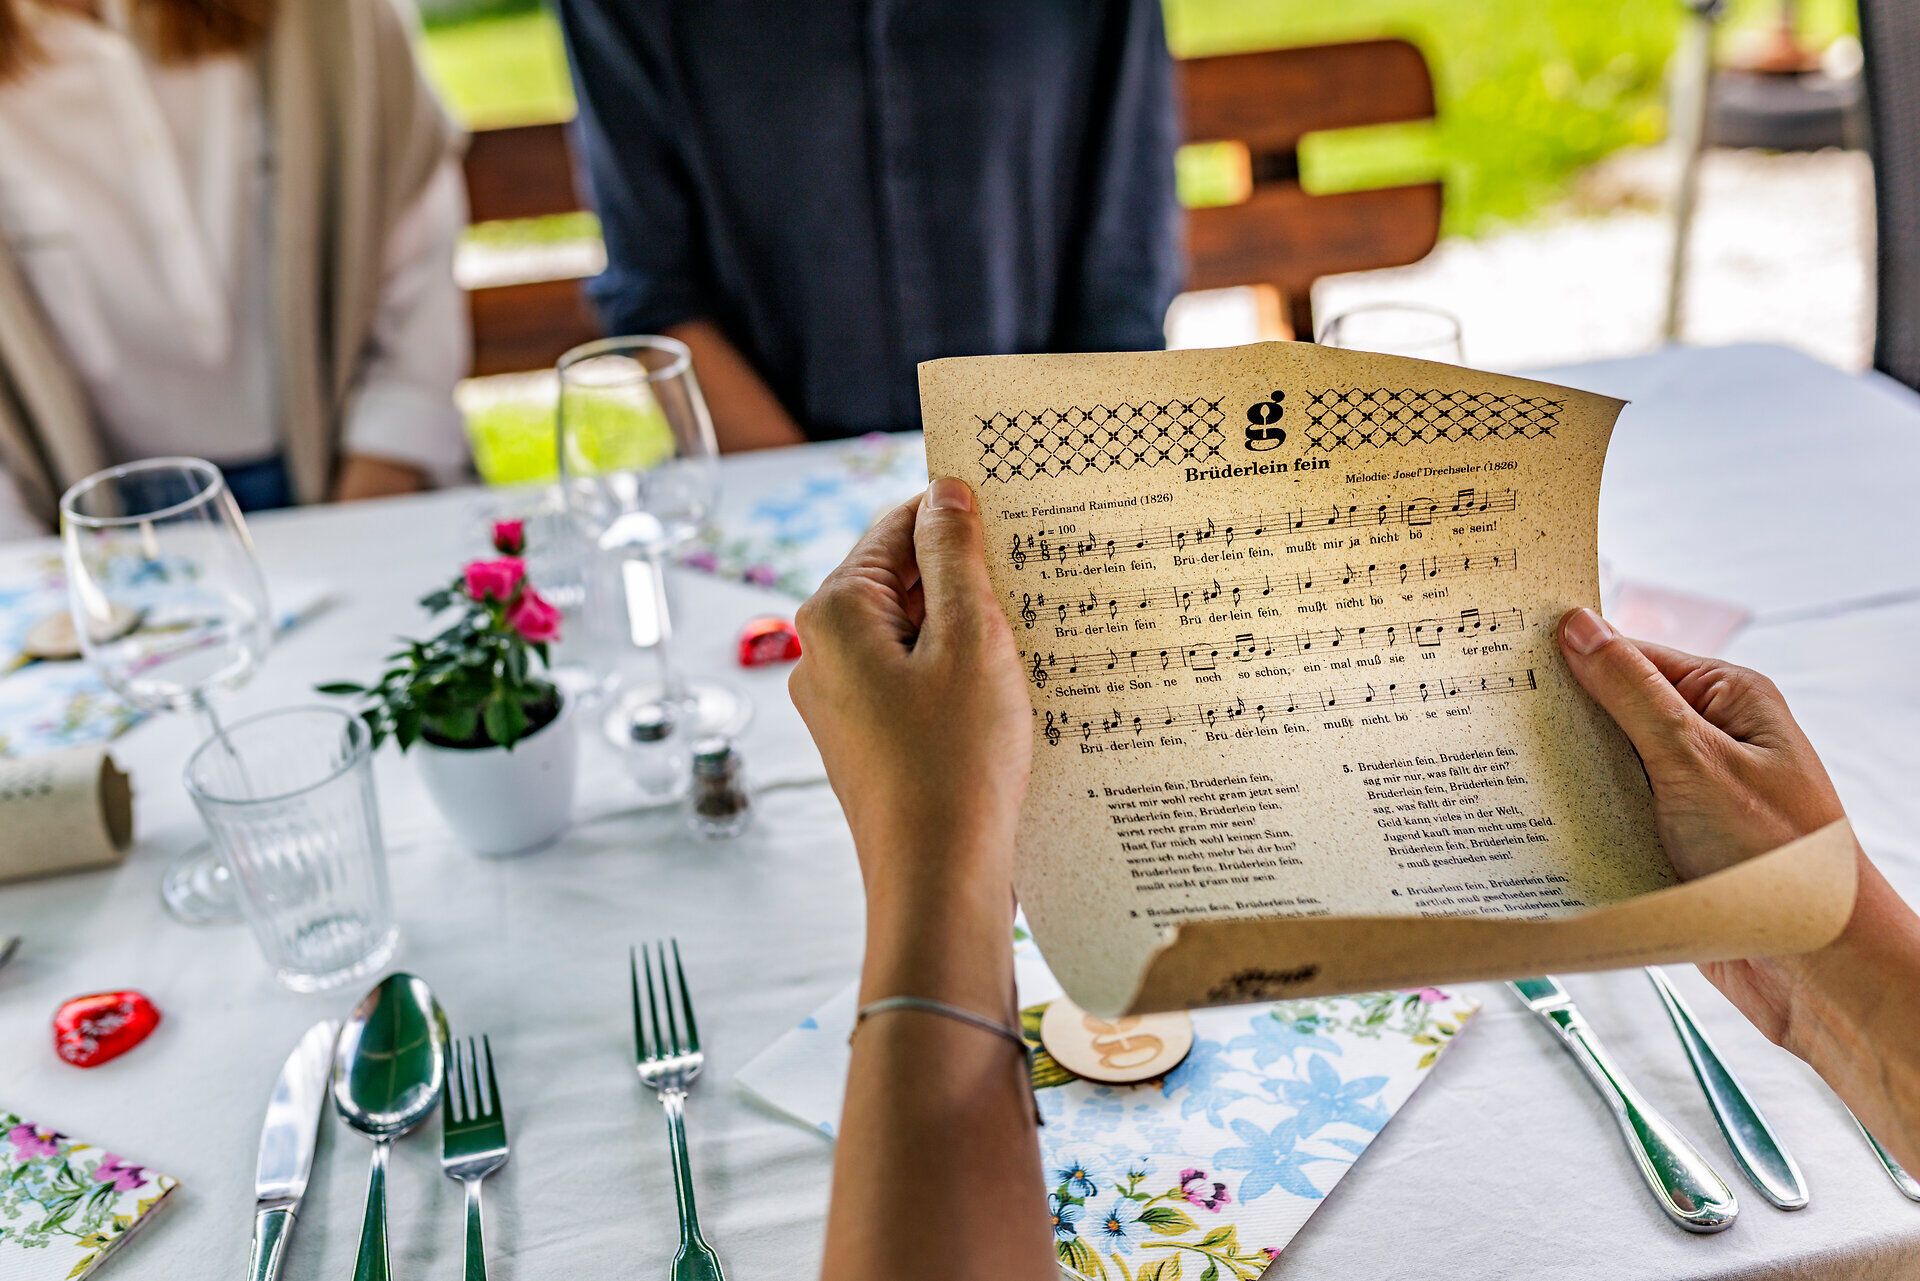 g
Brüderlein fein
Text: Ferdinand Raimund (1826)
Melodie: Josef Drechseler (1826)
= 100
1. Brü-der-lein fein, Brü-der-lein fein, mußt mir ja nicht bö - se sein!
5
Brü-der-lein fein Brü-der-lein fein, mußt nicht bö - se sein!
Scheint die Son - ne noch so schön, ein - mal muß sie un - ter gehn.
Brü-der-lein fein, Brü-der-lein fein, mußt nicht bö - se sein!
2. Bruderlein fein, Brüderlein fein,
wirst mir wohl recht gram jetzt sein!
Brüderlein fein, Brüderlein fein,
wirst recht gram mir sein!
Hast für mich wohl keinen Sinn,
wenn ich nicht mehr bei dir bin?
Bruderlein fein, Brüderlein fein,
mußt nicht gram mir sein.
3. Bruderlein fein, Brüderlein fein,
5. Brüderlein fein, Brüderlein fein,
sag mir nur, was fällt dir ein?
Brüderlein fein, Brüderlein fein,
sag, was fällt dir ein?
Geld kann vieles in der Welt,
Jugend kauft man nicht ums Geld.
Brüderlein fein, Brüderlein fein,
's muß geschieden sein!
6. Brüderlein fein, Brüderlein fein,
zärtlich muß geschieden sein!
Brüderlein fein, Brüderlein fein,
g